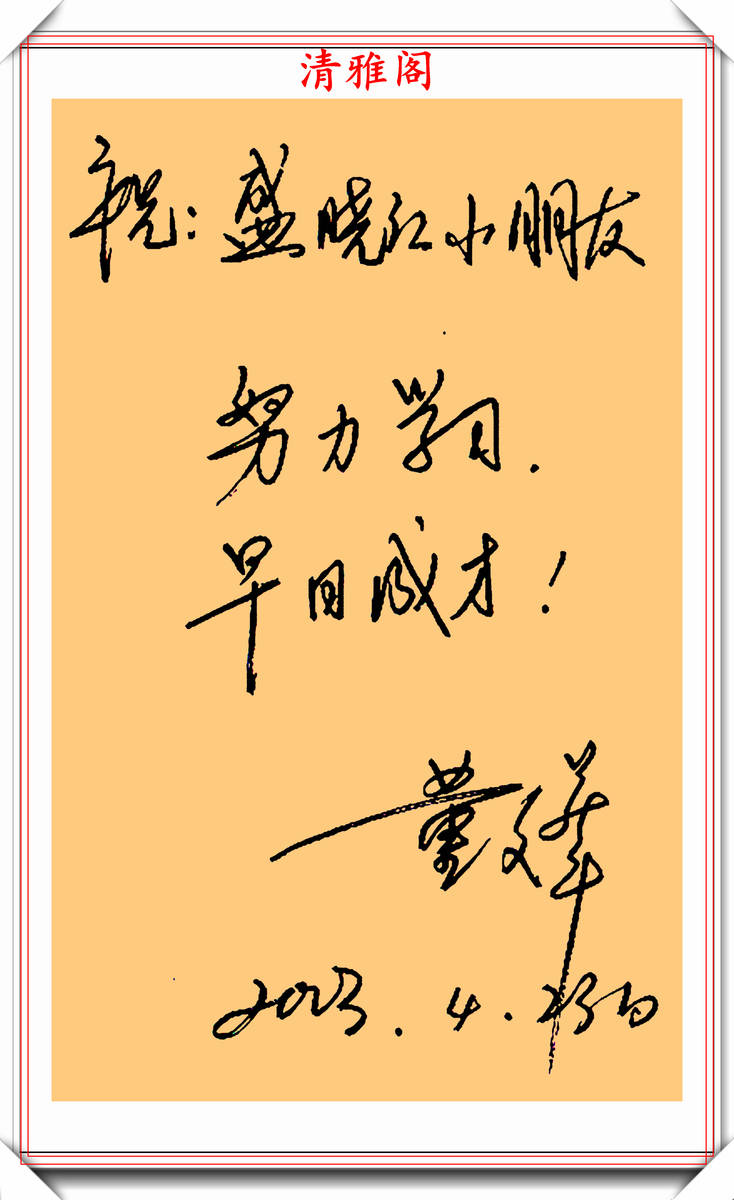 清雅阁
祝：盛晓红小朋友
努力学习．
早日成才！
董文华
2023．4．23日